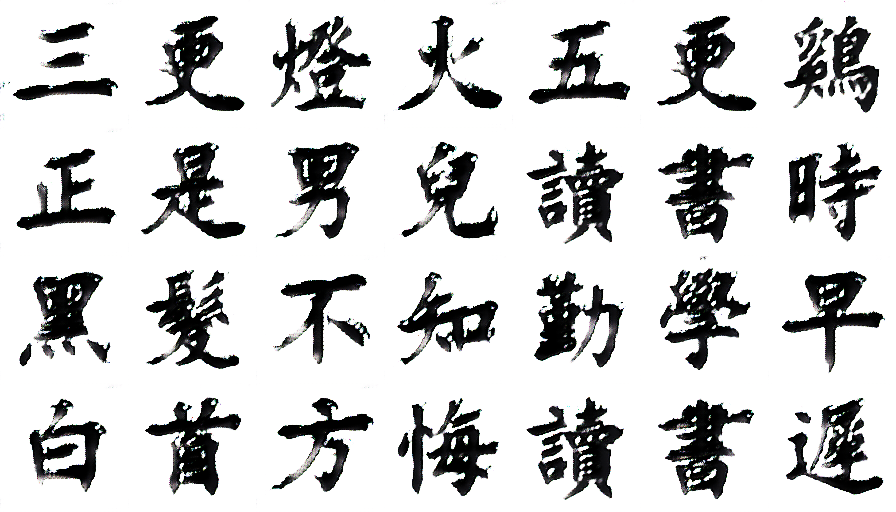 三更燈火五更鷄
正是男兒讀書時
黑髮不知勤學早
白首方悔讀書遲